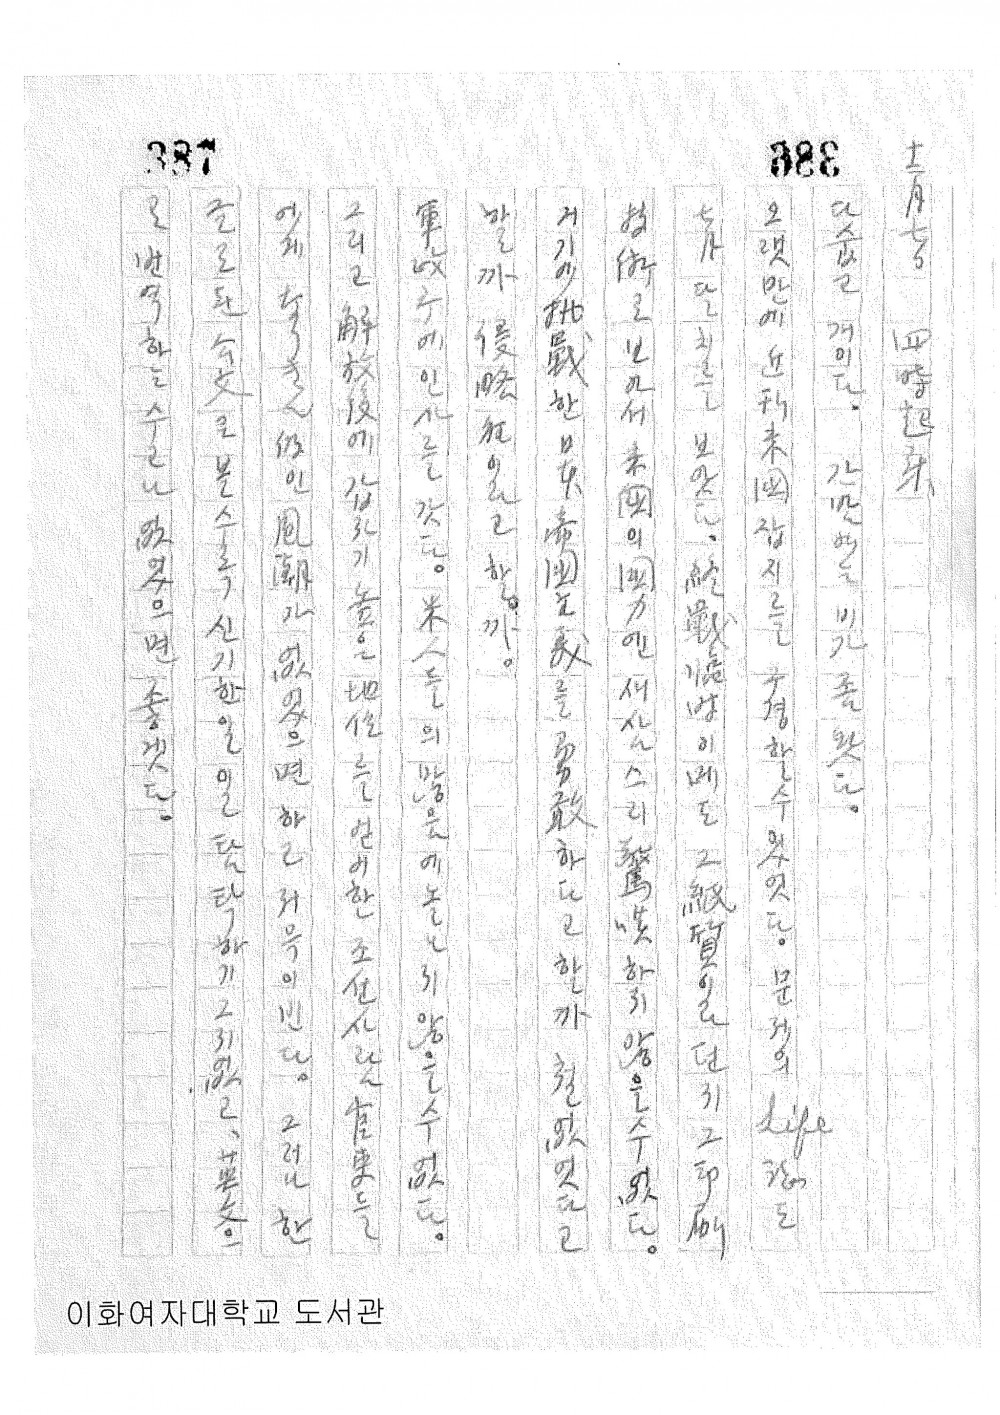 387
386
十一月七日 四時起床
다숩고 개이다. 간밤에는 비가 좀 왓다.
오랫만에 近刊 米國 잡지를 구경할수 잇엇다. 문제의 Life 誌도
七月달치를 보앗다. 終戰 이메도 그 紙質이란 단지 그 印刷
技術로 보아서 米國의 國力엔 새삼스리 驚嘆하지 않을수 없다.
거기에 挑戰한 日本帝國主義를 勇敢하다고 할까 철없엇다고
할까 侵略 狂이라고 할까.
軍政 구에 인사를 갓다. 米人들의 많음에 놀나지 않을수 없다.
그리고 解放後에 갑작기 높은 地位를 얻어한 조선사람 官吏들
에게 風潮가 없엇으면 하고 저윽이 빈다. 그러나 한
글로 된 公文로 볼수록 신기한 일일 탐탁하기 그지없고, 英文으
로 번역하는 수고나 없엇으면 좋겟다.
이화여자대학교 도서관